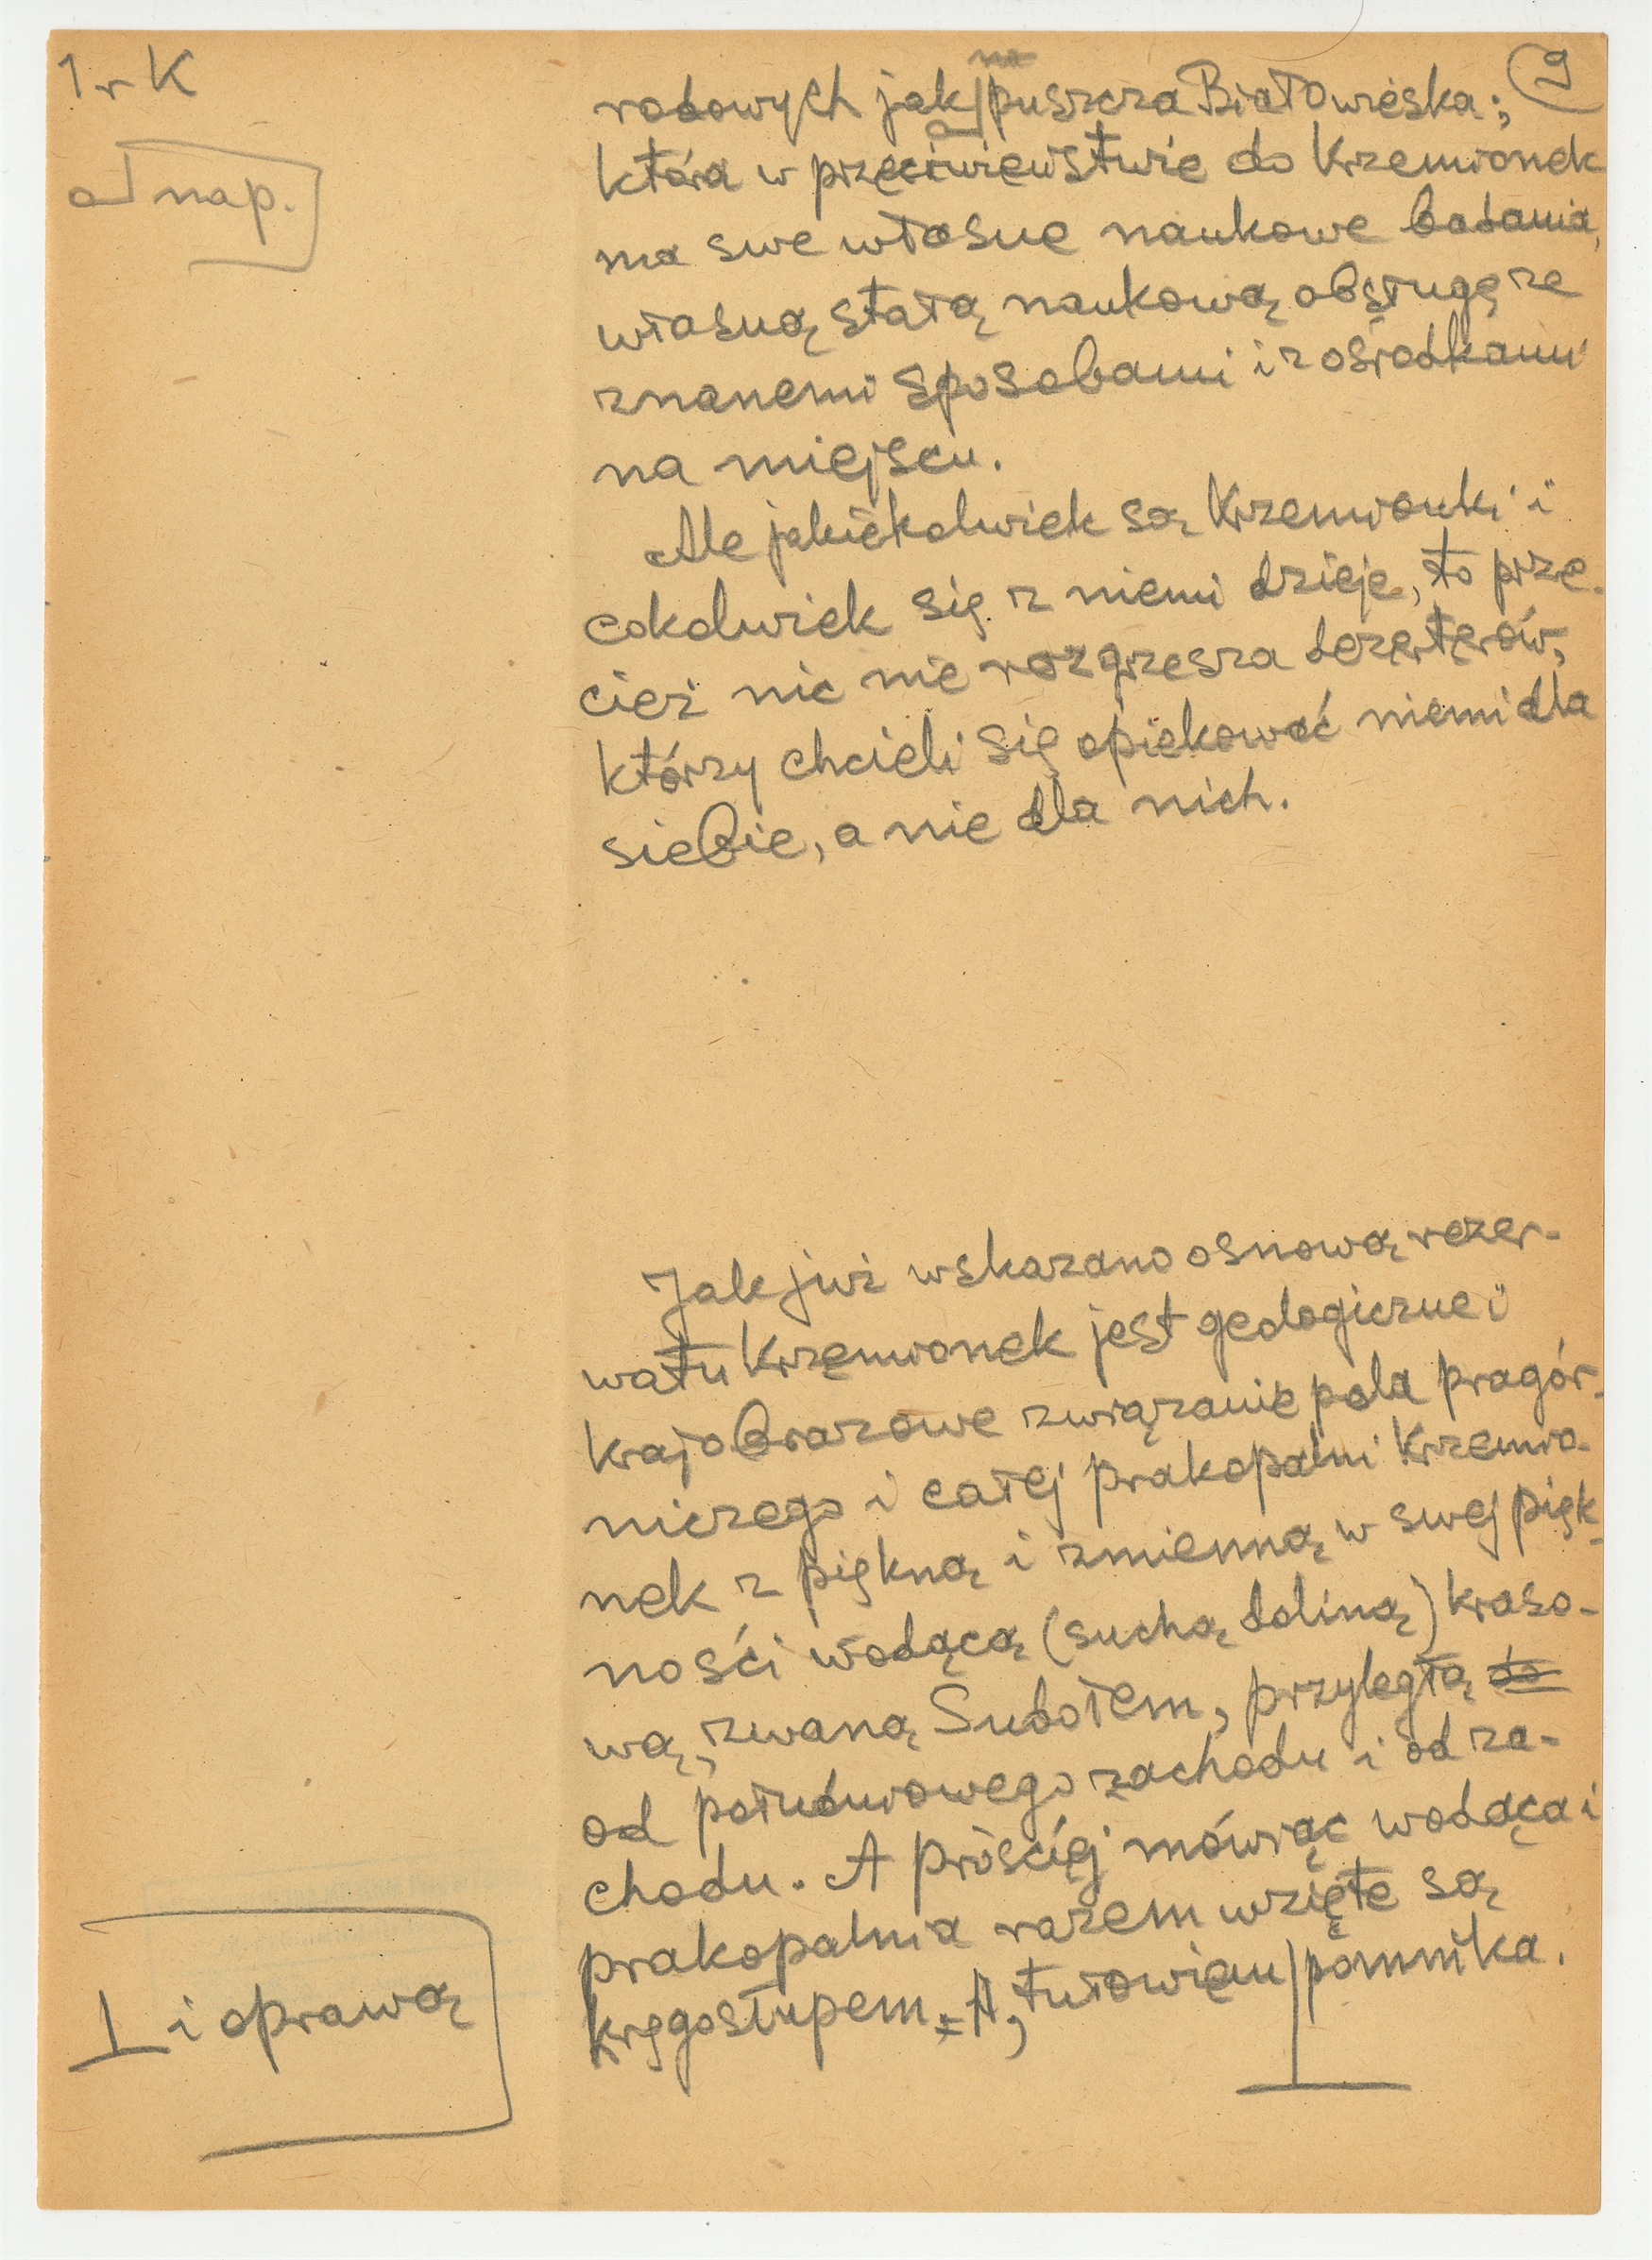 1 r K
9
na
rodowych jak puszcza Białowieska;
nap.
która w przeciwieństwie do Krzemionek
ma swe własne naukowe badania,
własną stałą naukową obsługę ze
znanemi sposobami i z ośrodkami
na miejscu.
Ale jakiekolwiek są Krzemionki i
cokolwiek się z niemi dzieje, to prze-
cież nic nie rozgrzesza dezerterów,
którzy chcieli się opiekować niemi dla
siebie, a nie dla nich.
Jak już wskazano osnową rezer-
watu Krzemionek jest geologiczne i
krajobrazowe związanie pola pragór-
niczego i całej prakopalni Krzemio-
nek z piękną i zmienną w swej pięk-
ności wodącą (suchą doliną) kraso-
wą, zwaną Sudołem, przyległą do
od południowego zachodu i od za-
chodu. A prościej mówiąc wodąca i
prakopalnia razem wzięte są
kręgosłupem, tułowiem pomnika.
i oprawą